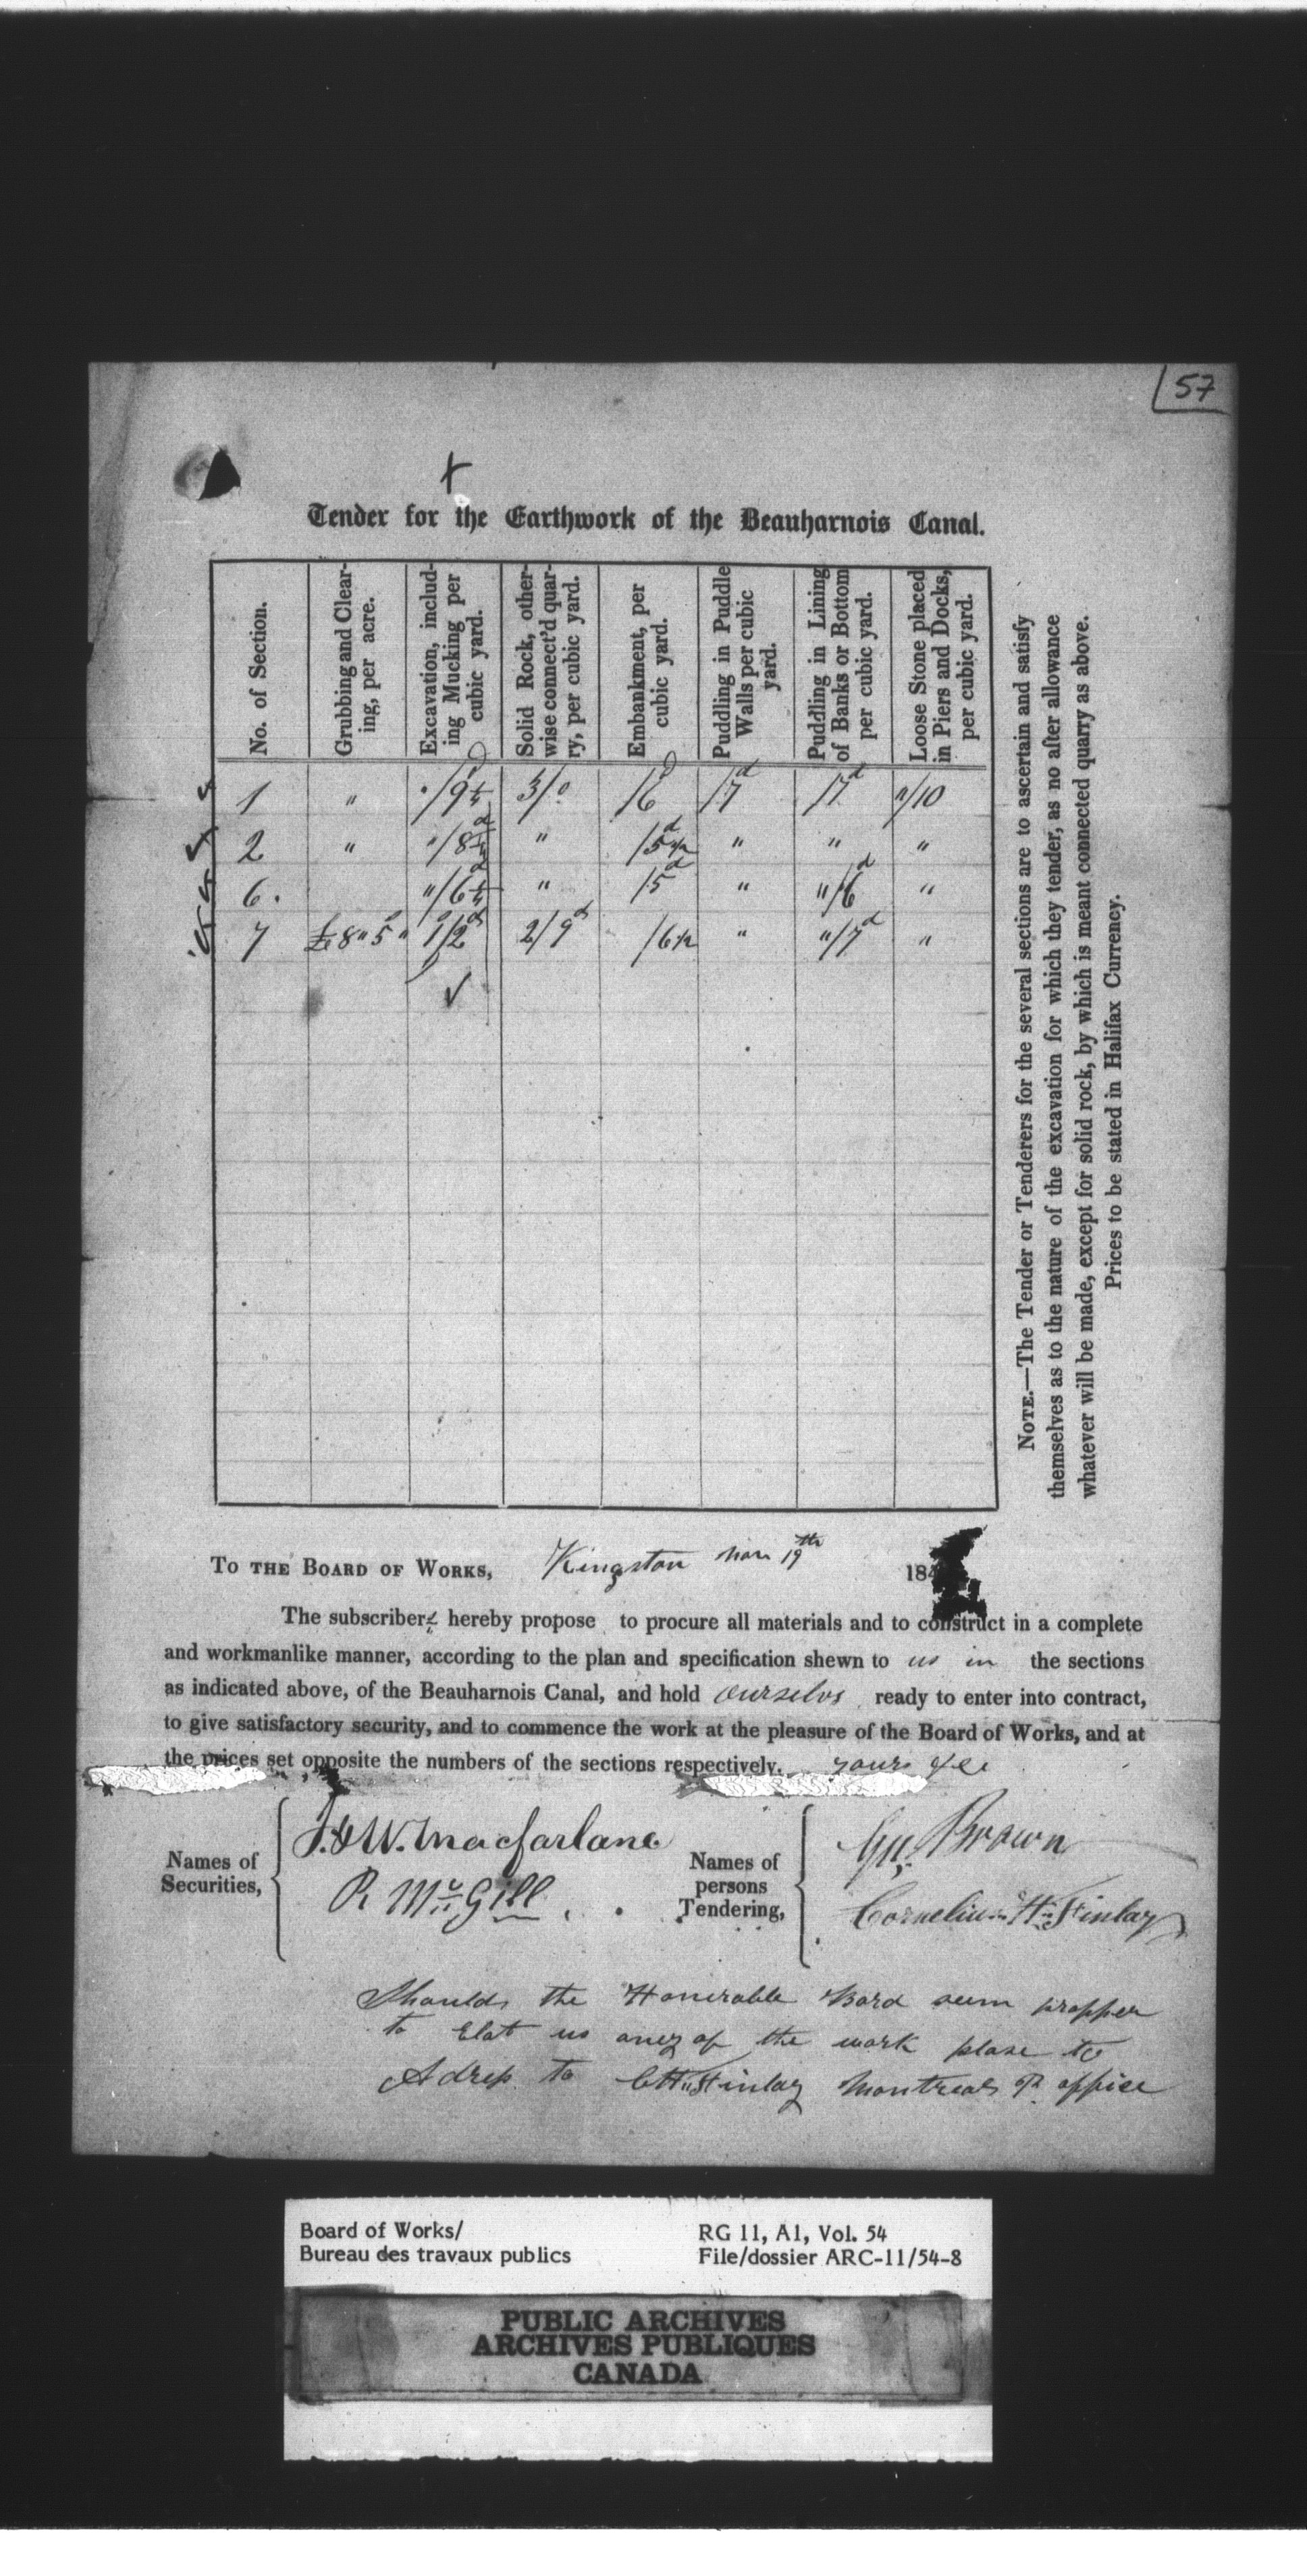 57
Tender for the Earthwork of the Beauharnois Canal.
No. of Section.
Grubbing and Clear-
ing, per acre.
Excavation, includ-
ing Mucking per
cubic yard.
Solid Rock, other-
wise connect'd quar-
ry, per cubic yard.
Embankment, per
cubic yard.
Puddling in Puddle
Walls per cubic
yard.
Puddling in Lining
of Banks or Bottom
per cubic yard.
Loose Stone placed
in Piers and Docks,
per cubic yard.
1 " /9 3/0 /6d /7d /7d "/10
2 " "/8 " /5d 1/2 " " "
6. "/6 " /5d " "/6d "
7 £8"5" 1/2d 2/9d /6 1/2 " "/7d "
NOTE.—The Tender or Tenderers for the several sections are to ascertain and satisfy
themselves as to the nature of the excavation for which they tender, as no after allowance
whatever will be made, except for solid rock, by which is meant connected quarry as above.
Prices to be stated in Halifax Currency.
TO THE BOARD OF WORKS, Kingston Nov 19th 184
The subscribers hereby propose to procure all materials and to construct in a complete
and workmanlike manner, according to the plan and specification shewn to us in the sections
as indicated above, of the Beauharnois Canal, and hold ourselvs ready to enter into contract,
to give satisfactory security, and to commence the work at the pleasure of the Board of Works, and at
the prices set opposite the numbers of the sections respectively. yours &c
Names of
Securities,
J. & W. Macfarlane
R McGill
Names of
persons
Tendering,
Brown
Cornelius H. Finlay
Should the Honerable Bord seem propper
to Elot us aney of the work plase to
Adress to C H Finlay Montreal P office
Board of Works/
Bureau des travaux publics
RG 11, A1, Vol. 54
File/dossier ARC-11/54-8
PUBLIC ARCHIVES
ARCHIVES PUBLIQUES
CANADA